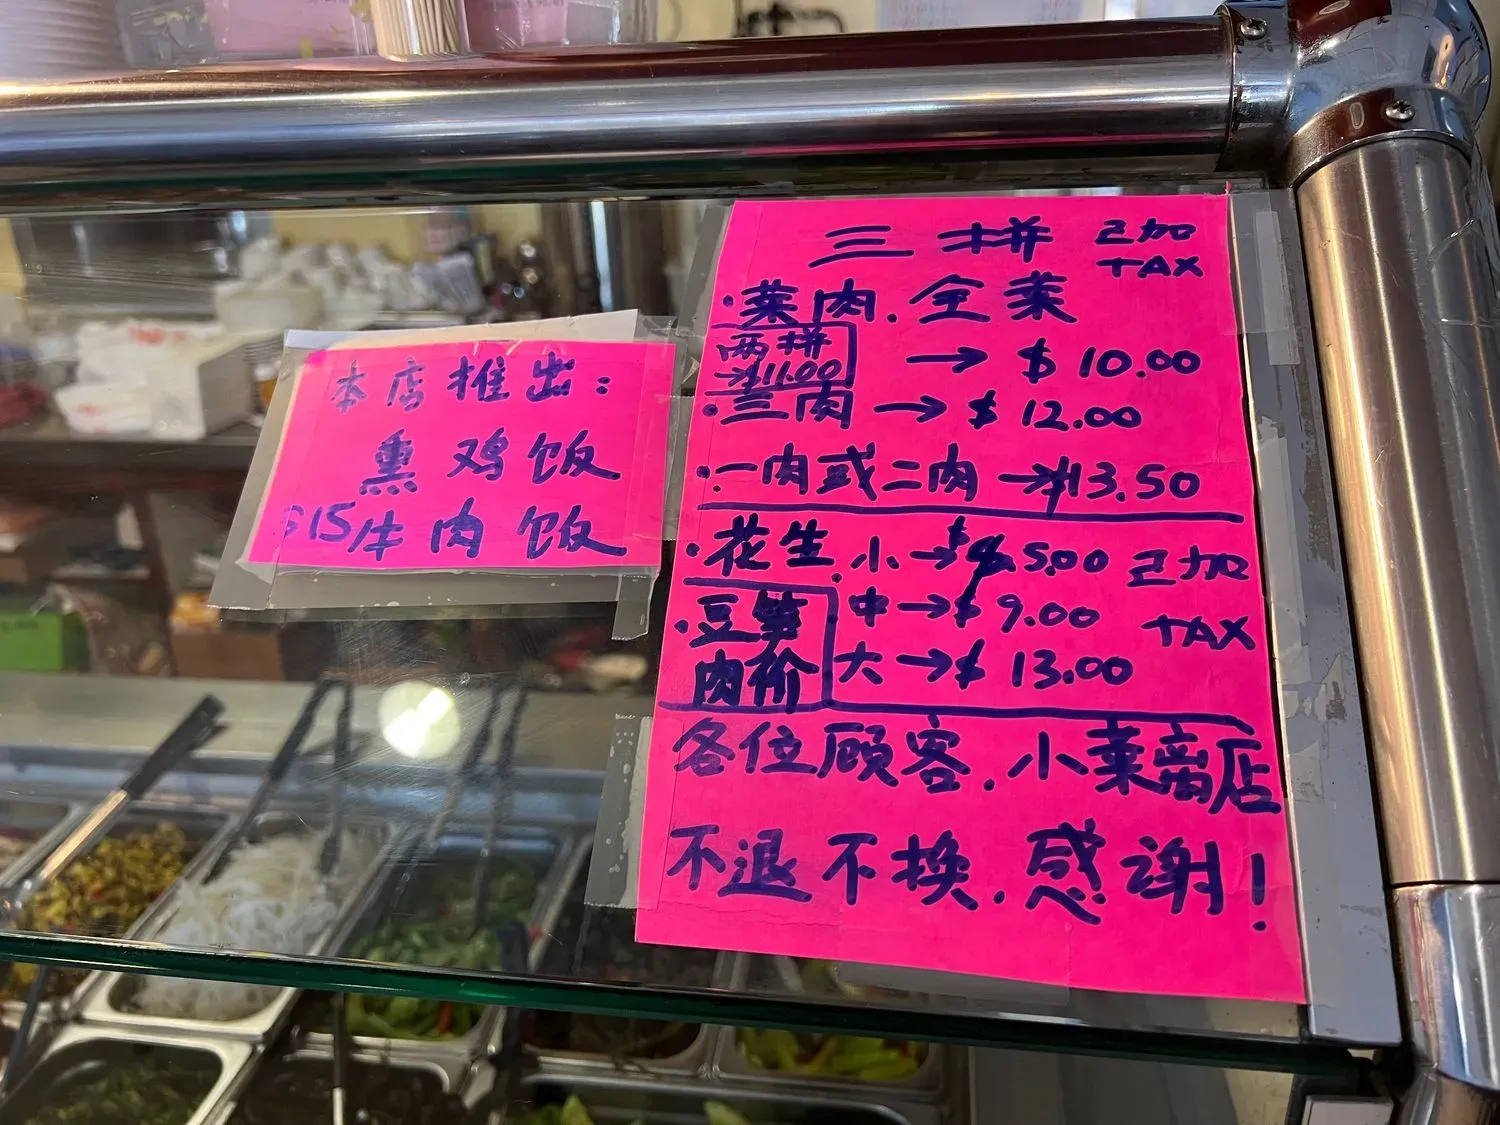 本店推出：
熏鸡饭
$15/牛肉饭
三拼 已加
TAX
·菜肉.全菜
→ $10.00
两拼
→$11.00
·三肉 → $12.00
·一肉或二肉 → $13.50
·花生.小→$5.00 已加
TAX
·豆笋
肉价
中→$9.00
大→$13.00
各位顾客.小菜离店
不退不换.感谢！